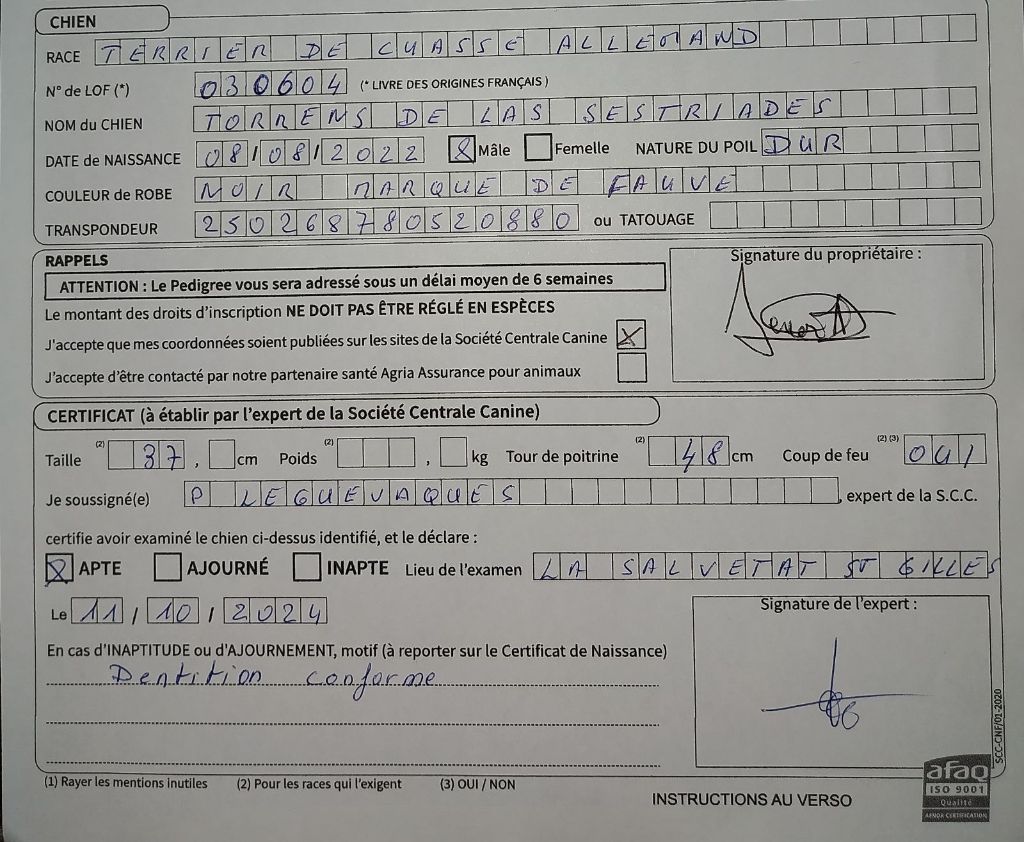 CHIEN
RACE TERRIER DE CHASSE ALLEMAND
N° de LOF (*) 030604 (* LIVRE DES ORIGINES FRANÇAIS)
NOM du CHIEN TORRENS DE LAS SESTRIADES
DATE de NAISSANCE 08/08/2022 Mâle Femelle NATURE DU POIL DUR
COULEUR de ROBE NOIR MARQUE DE FAUVE
TRANSPONDEUR 250268780520880 ou TATOUAGE
RAPPELS
Signature du propriétaire :
ATTENTION : Le Pedigree vous sera adressé sous un délai moyen de 6 semaines
Le montant des droits d'inscription NE DOIT PAS ÊTRE RÉGLÉ EN ESPÈCES
J'accepte que mes coordonnées soient publiées sur les sites de la Société Centrale Canine X
J'accepte d'être contacté par notre partenaire santé Agria Assurance pour animaux
CERTIFICAT (à établir par l'expert de la Société Centrale Canine)
Taille (2) 37 , cm Poids (2) , kg Tour de poitrine (2) 48 cm Coup de feu (2) (3) OUI
Je soussigné(e) P LEGUEVAQUES , expert de la S.C.C.
certifie avoir examiné le chien ci-dessus identifié, et le déclare :
APTE AJOURNÉ INAPTE Lieu de l'examen LA SALVETAT ST GILLES
Le 11 / 10 / 2024
Signature de l'expert :
En cas d'INAPTITUDE ou d'AJOURNEMENT, motif (à reporter sur le Certificat de Naissance)
Dentition conforme
(1) Rayer les mentions inutiles (2) Pour les races qui l'exigent (3) OUI / NON
INSTRUCTIONS AU VERSO
SCC-CNF/01-2020
afaq
ISO 9001
Qualité
AFNOR CERTIFICATION